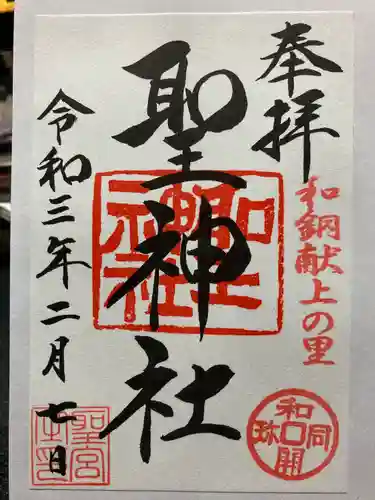 奉拝
和銅献上の里
聖神社
令和三年二月七日
聖神社
和同開珎
聖宮